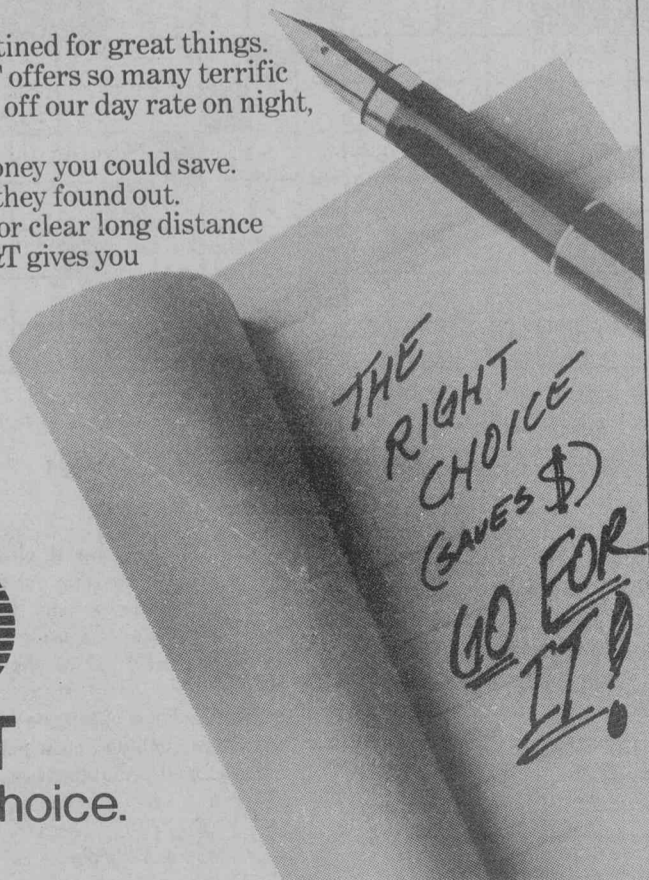 tined for great things.
T offers so many terrific
off our day rate on night,
oney you could save.
they found out.
or clear long distance
&T gives you
THE
RIGHT
CHOICE
(SAVES $)
GO FOR
IT!
T
hoice.